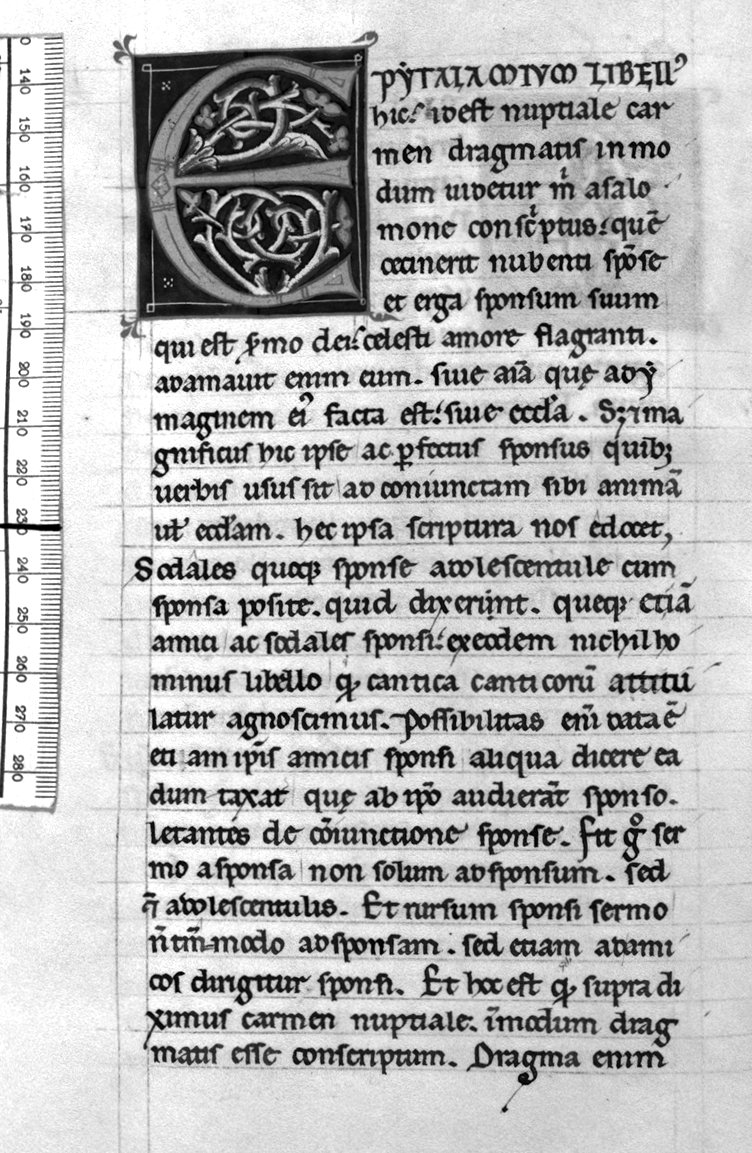 EPYTALAMIVM LIBELL᷒
hic᛬ idest nuptiale car
men dragmatis in mo
dum uidetur m̍ a salo
mone consc̍ptus᛬ quē
cecinerit nubenti spōse
et erga sponsum suum
qui est s̄mo dei᛬ celesti amore flagranti.
adamauit enim eum. siue aīa quę ad y
maginem ei᷒ facta est᛬ siue eccl̄a. Sꝫ ⁊ ma
gnificus hic ipse ac ꝑfectus sponsus quibꝫ
uerbis usus sit ad coniunctam sibi animā
ut̄ eccl̄am. hec ipsa scriptura nos edocet,
Sodales quoqꝫ sponse adolescentule cum
sponsa posite. quid dixerunt. queqꝫ etiā
amici ac sodales sponsi᛬ ex eodem nichilho
minus libello qđ cantica canticorū attitu
latur agnoscimus. Possibilitas eni̅ data ē
etiam ip̄is amicis sponsi aliqua dicere ea
dum taxat quę ab ip̄o audierāt sponso.
letantes de cōiunctione sponse. Fit gͦ ser
mo a sponsa non solum ad sponsum. sed
⁊ adolescentulis. Et rursum sponsi sermo
n̄ tm̄modo ad sponsam. sed etiam ad ami
cos dirigitur sponsi. Et hoc est qđ supra di
ximus carmen nuptiale. ī modum drag
matis esse conscriptum. Dragma enim
140
150
160
170
180
190
200
210
220
230
240
250
260
270
280